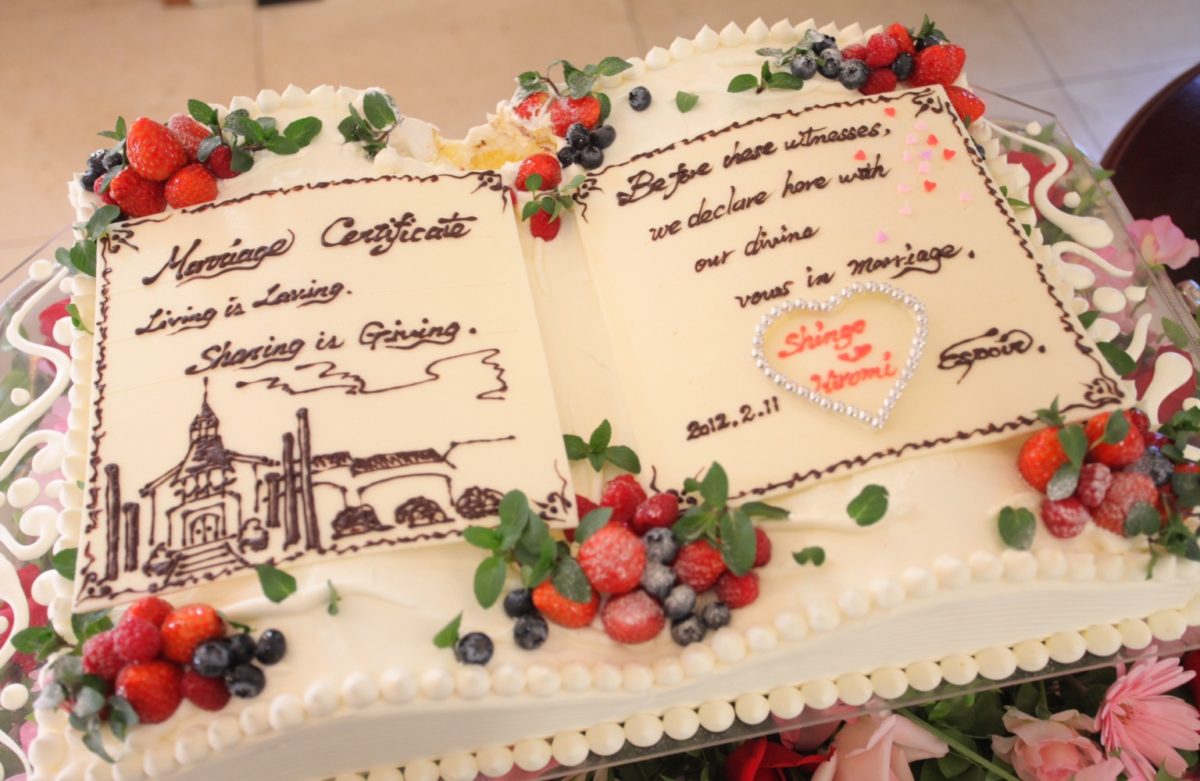 Marriage Certificate
Living is Loving.
Sharing is Giving.
Before these witnesses,
we declare here with
our divine
vows in marriage.
Shingo
Hiromi
Espoir.
2012.2.11